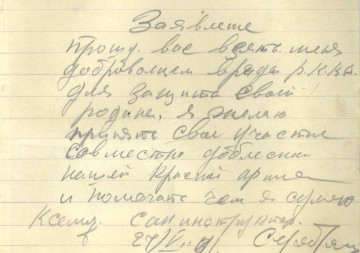 Заявление
Прошу вас взять меня
добровольцем в ряды Р.К.К.А.
для защиты своей
родины, я желаю
принять свое участие
совместно доблесной
нашей Красной армией
и помогать чем я сумею
санинструктор.
24/VI